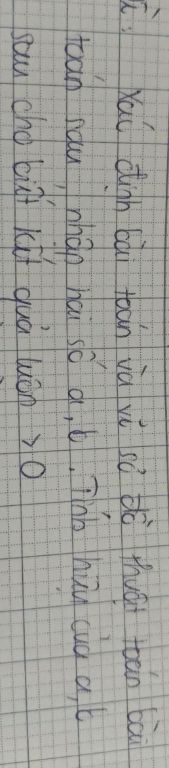 Xác định bài toán và vẽ sơ đồ thuật toán bài
toán sau: nhập hai số a, b. Tính hiệu của a, b
sau cho biết kết quả luôn > 0